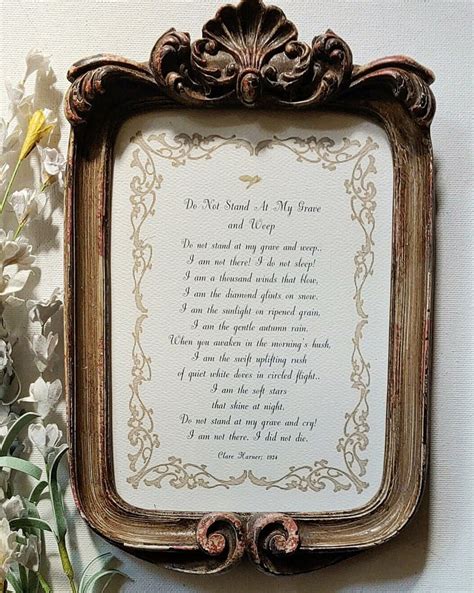 Do Not Stand At My Grave
and Weep
Do not stand at my grave and weep..
I am not there! I do not sleep!
I am a thousand winds that blow,
I am the diamond glints on snow.
I am the sunlight on ripened grain,
I am the gentle autumn rain.
When you awaken in the morning's hush,
I am the swift uplifting rush
of quiet white doves in circled flight..
I am the soft stars
that shine at night.
Do not stand at my grave and cry!
I am not there. I did not die.
Clare Harner; 1934